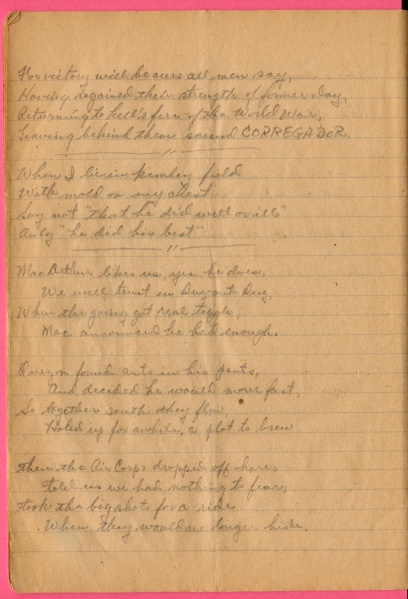 For victory will be ours all men say,
Having regained their strength of former day,
Returning to hell's fire of the World War,
Leaving behind them sacred CORREGADOR.
"
When I lie in Kimley field
With mold on my chest
Say not "that he did well or ill"
Only "he did his best"
"
Mac Arthur likes us, yes he does,
We will trust in Dug-out Doug,
When the going got real tough,
Mac announced he had enough.
found ants in his pants,
And decided he would move fast,
So together south they flew,
Holed up for awhile, a plot to brew
Then the Air Corps dropped off here,
told us we had nothing to fear,
Took the big shots for a ride
When they would no longer hide.